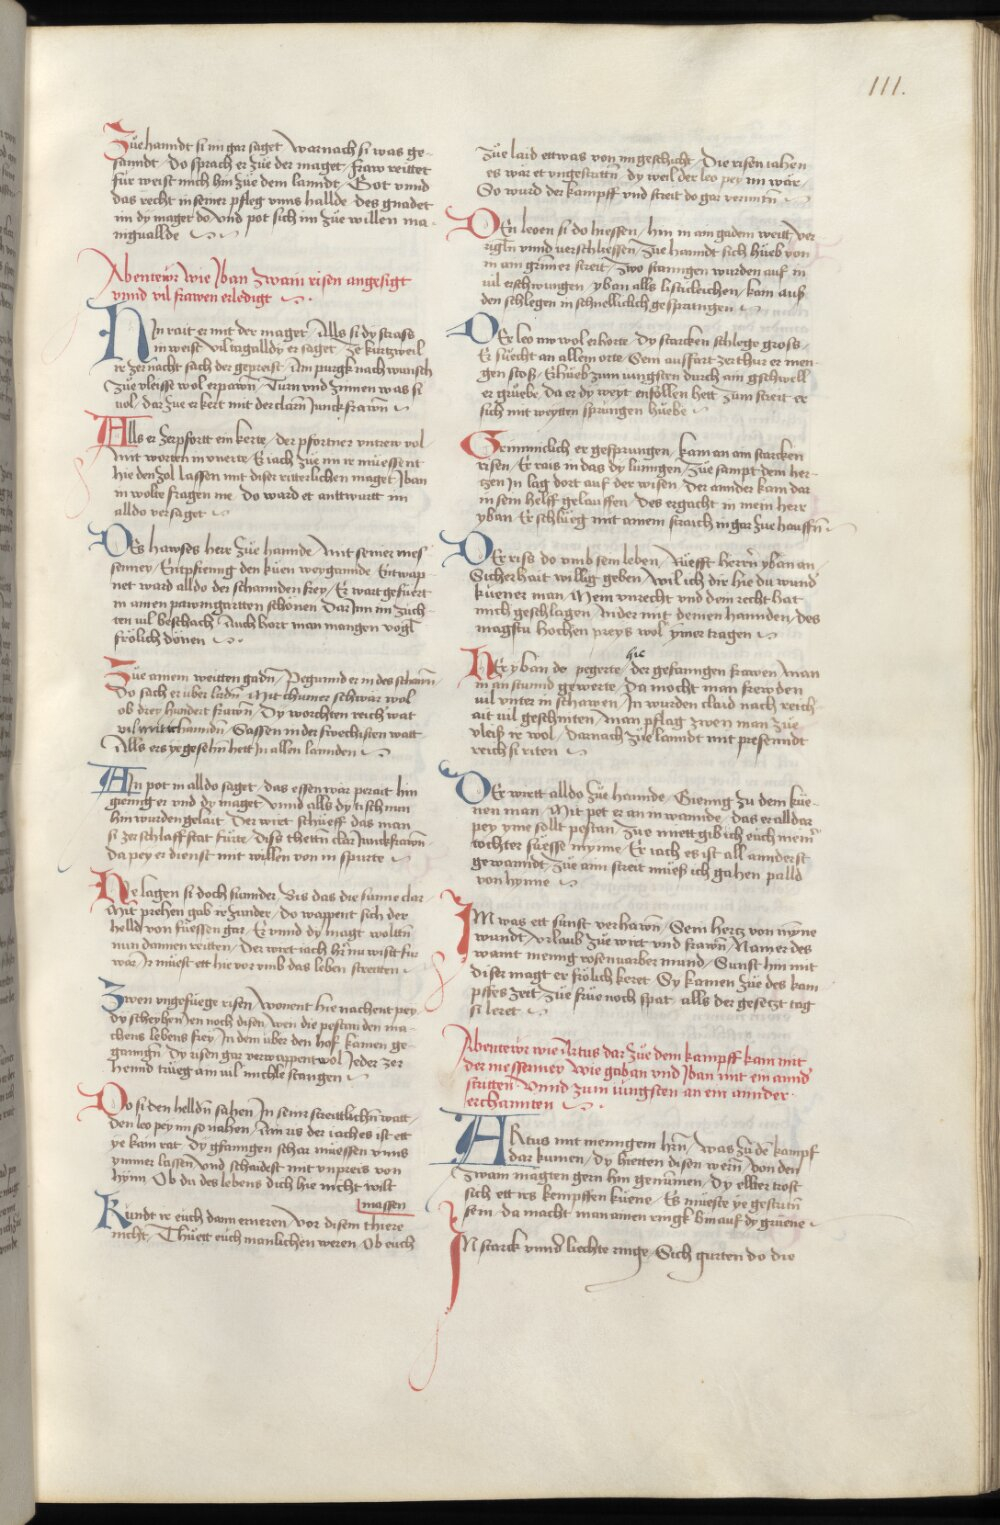 111.
Zůe hanndt si im gar saget / Warnach si was ge-
sanndt / Do sprach er zůe der maget / Fraw reittet
für weist mich hin zůe dem lanndt / Got vnnd
das recht in seiner pfleg vnns hallde / des gnadet
im dy maget do / vnd pot sich im zůe willen ma-
niguallde
Abentewr wie Iban zwain risen angesigt
vnnd vil frawen erledigt
Nin rait er mit der maget / Alls si dy strass
in weist / vil tagalldy er saget / ze kurtzweil
ir ze nacht sach der gepreist / Ain purgk nach wunsch
zůe vleisse wol erpawn / Turn vnd zinnen was si
vol / dar zue er kert mit der clarn Junckfrawn
Alls er zer pfortt ein kerte / der pfortner vntrew vol
Mit worten in vnerte / Er iach zůe im ir müessent
hie den zol lassen mit diser ritterlichen maget / Iban
in wolte fragen me / Do ward et anttwurtt im
alldo versaget
Des hawses herr zůe hannde / Mit seiner mes-
seney / Entpfienng den küen weygannde / Entwap-
net ward alldo der schannden frey / Er wart gefüert
in amen pawmgartten schönen / Dar Inn im züch-
ten vil beschach / Auch hort man mangen vogl
frölich dönen
Zůe ainem weitten gadn / Pegunnd er in des schawn
Do sach er über ladn / Mit chumer schwär wol
ob drey hundert frawn / Dy worchten reich wat
vil mit hanndn / Sassen in der swechisten watt
Alls ers ye gesehn hett In allen lannden
Ain pot in alldo saget / das essen wär perait hin
gienng er vnd dy maget / vnnd alls dy tisch nun
hin wurden gelait / Der wirt schueff das man
si zer schlaffstat fürte / Diss thettn clar Junckfrawn
da pey er dienst mit willen von in spurte
Ne lagen si doch sunnder / Bis das die sunne clar
Mit prehen gab ir zunder / Do wappent sich der
helld von füessen gar / Er vnnd dy magt wolltn
nun dannen reitten / Der wirt iach hr nu wistt für
war / Ir müest ett hie vor vmb das leben streitten
Zwen vngefuege risen / Wonent hie nachent pey
dy scheyhen Jen noch disen / Wen die pestan den ma-
chens lebens frey / In dem über den hof kamen ge-
ganngn / Dy risen gar verwappent wol / Jeder zer
hennd trüeg ain vil michle stangen
Do si den helldn sahen / In seiner streittlichn watt
den leo pey im so nahen / Ain ris der iaches ist ett
ye kain rat / Dy gfanngen schar müessen vnns
ymmer lassen / vnd schaidest mit vnpreis von
hynn / Ob du des lebens dich hie nicht wilt
massen
Kundt ir euch dann erneren / Vor disem thiere
nicht / Thüett euch manlichen weren / Ob euch
Zůe laid ettwas von im geschicht / Die risen iahen
es wär et vngestrittn / dy weil der leo pey im wär
So wurd der kampff vnd streit do gar vermitn
Den leoen si do hiessen / Inn in ain gadem weitt ver-
rigln vnnd verschliessen / Zůe hanndt sich hůeb von
in ain grimer streit / Zwo stanngen wurden auf in
vil erschwungen / yban alls listicleichen / kam aus
den schlegen in schnelliclich gesprungen
Der leo nw wol erhorte / Dy starcken schlege gross
Er suecht an allem orte / Sein ausfart zer thur er men-
gen stoß / Er hůeb zum iungsten durch ain gschwell
er gruebe / da er dy weyt enpfollen hett zum streit er
sich mit weytten sprüngen hüebe
Grimmiclich er gesprungen / kam an ain starcken
risen / Er rais in das dy lunngen / Zůe sampt dem her-
tzen In lag dort auf der wisen / Der annder kam dar
in sein helff gelauffen / Des ergacht in mein herr
yban / Er schlůeg mit ainem straich in gar zůe hauffn
Der riss do vmb sein leben / Rüefft herrn yban an
Sicherhait willig geben / Wil ich dir hie du wund
küener man / Mein vnrecht vnd dem recht hat
mich geschlagen / Nider mit deinen hannden / des
magstu hochen preys wol ymer tragen
Her yban do pegerte / der gefanngen frawen / Man
hie
in an stunnd gewerte / Da mocht man frewden
vil vnter in schawen / In wurden claid nach reich-
ait vil geschniten / Man pflag zwen man zůe
vleiß ir wol / Darnach zůe lanndt mit presenndt
reich si riten
Der wirtt alldo zůe hannde / Gienng zu dem küe-
nen man / Mit pet er an in wannde / das er alldar
pey yme sollt pestan / Zůe miett gib ich euch mein
tochter süesse mynne / Er iach es ist all annderst
gewanndt / Zůe ain streit müeß ich gahen palld
von hynne
Im was ett sunst verhawn / Sein hertz von myne
wundt / Vrlaub zůe wirt vnd frawn / Nam er des
wannt menig rosenuarber mund / Sunst hin mit
diser magt er frölich keret / Sy kamen zůe des kam-
pffes zeit / Zůe frůe noch spat / alls der gesetzt tag
si leret
Abentewr wie Artus dar zůe dem kampff kam mit
der messeney / Wie gaban vnd Iban mit ein annd
stritten / Vnnd zum iungsten an ein annder
erchannten
Artus mit menigem hrn / Was zu de kampf
dar kumen / dy hietten disen wern / Von den
zwain mägten gern hin genumen / Dy ellter trost
sich ett irs kempffen küene / Es müeste ye gestritn
sein / da macht man amen ringk hin auf dy grüene
In starck vnnd liechte ringe / Sich gurten do die